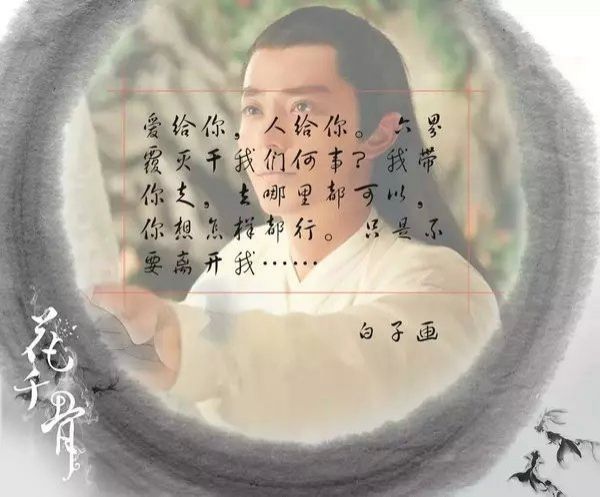 爱给你，人给你。六界
覆灭干我们何事？我带
你走，去哪里都可以，
你想怎样都行。只是不
要离开我……
白子画
花千骨